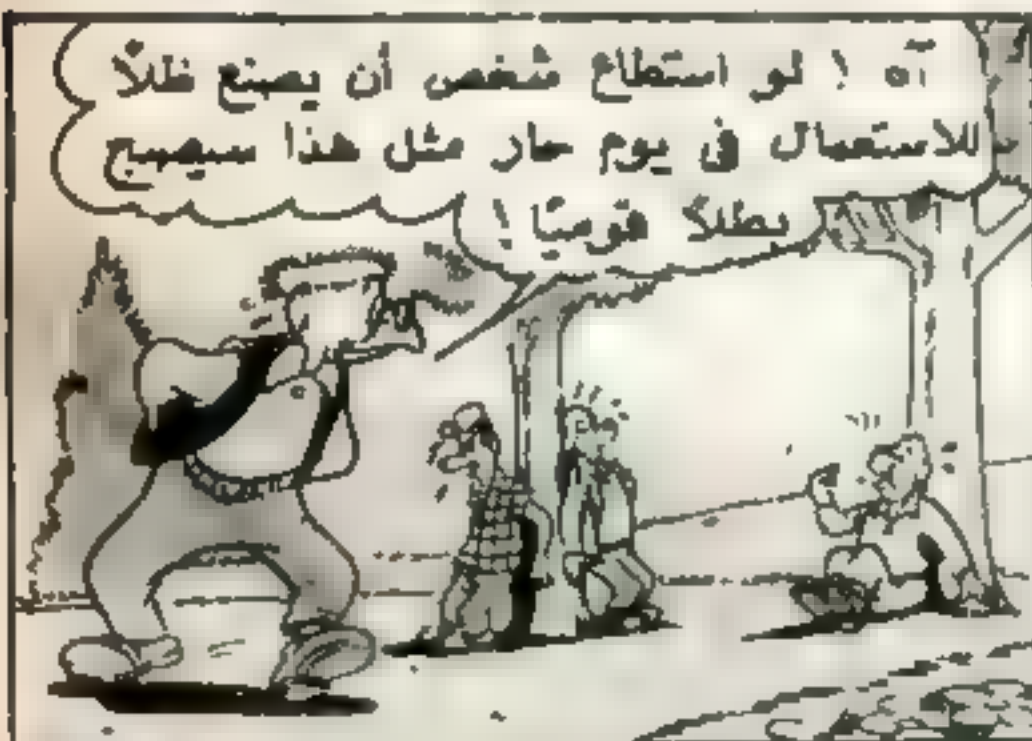 آه ! لو استطاع شخص أن يصنع ظلاً
للاستعمال فى يوم حار مثل هذا سيصبح
بطلاً قوميًا !